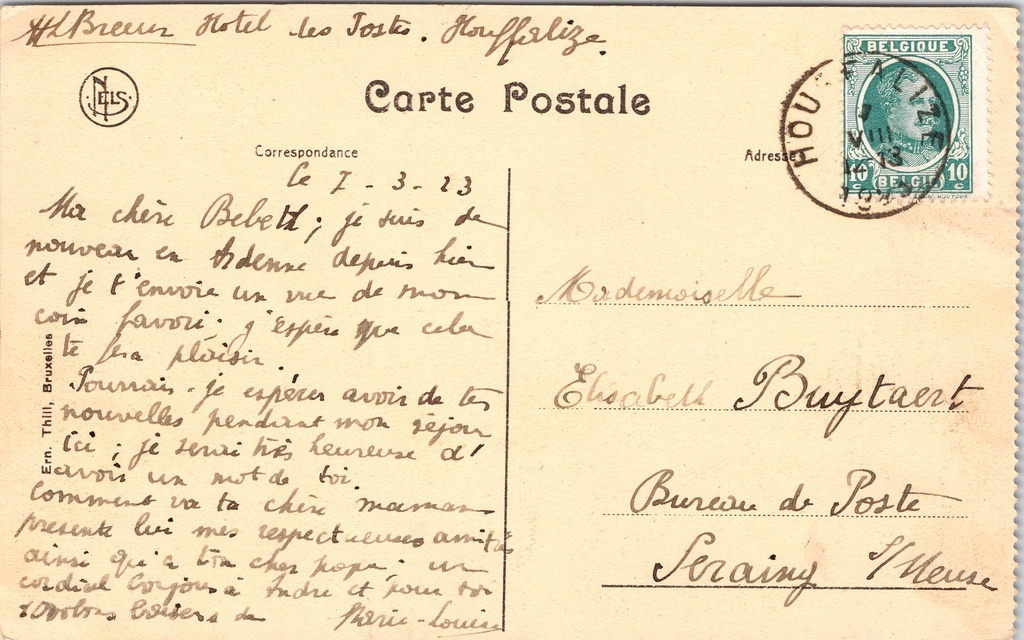 Hotel des Postes. Houffalize
NELS
Carte Postale
Correspondance
Adresse
BELGIQUE
10 BELGIË 10
HOUFFALIZE
VIII
Le 7-3-23
Ma chère Bebeth; je suis de
nouveau en Ardenne depuis hier
et je t'envoie un vue de mon
coin favori. j'espère que cela
te fera plaisir.
Pourrais-je espérer avoir de tes
nouvelles pendant mon séjour
ici; je serai très heureuse d'
avoir un mot de toi.
Comment va ta chère maman
présente lui mes respectueuses amitiés
ainsi qu'à ton cher papa. un
cordial bonjour à André et pour toi
bons baisers de Marie-Louise
Ern. Thill, Bruxelles
Mademoiselle
Elisabeth Buytaert
Bureau de Poste
Seraing s/Meuse